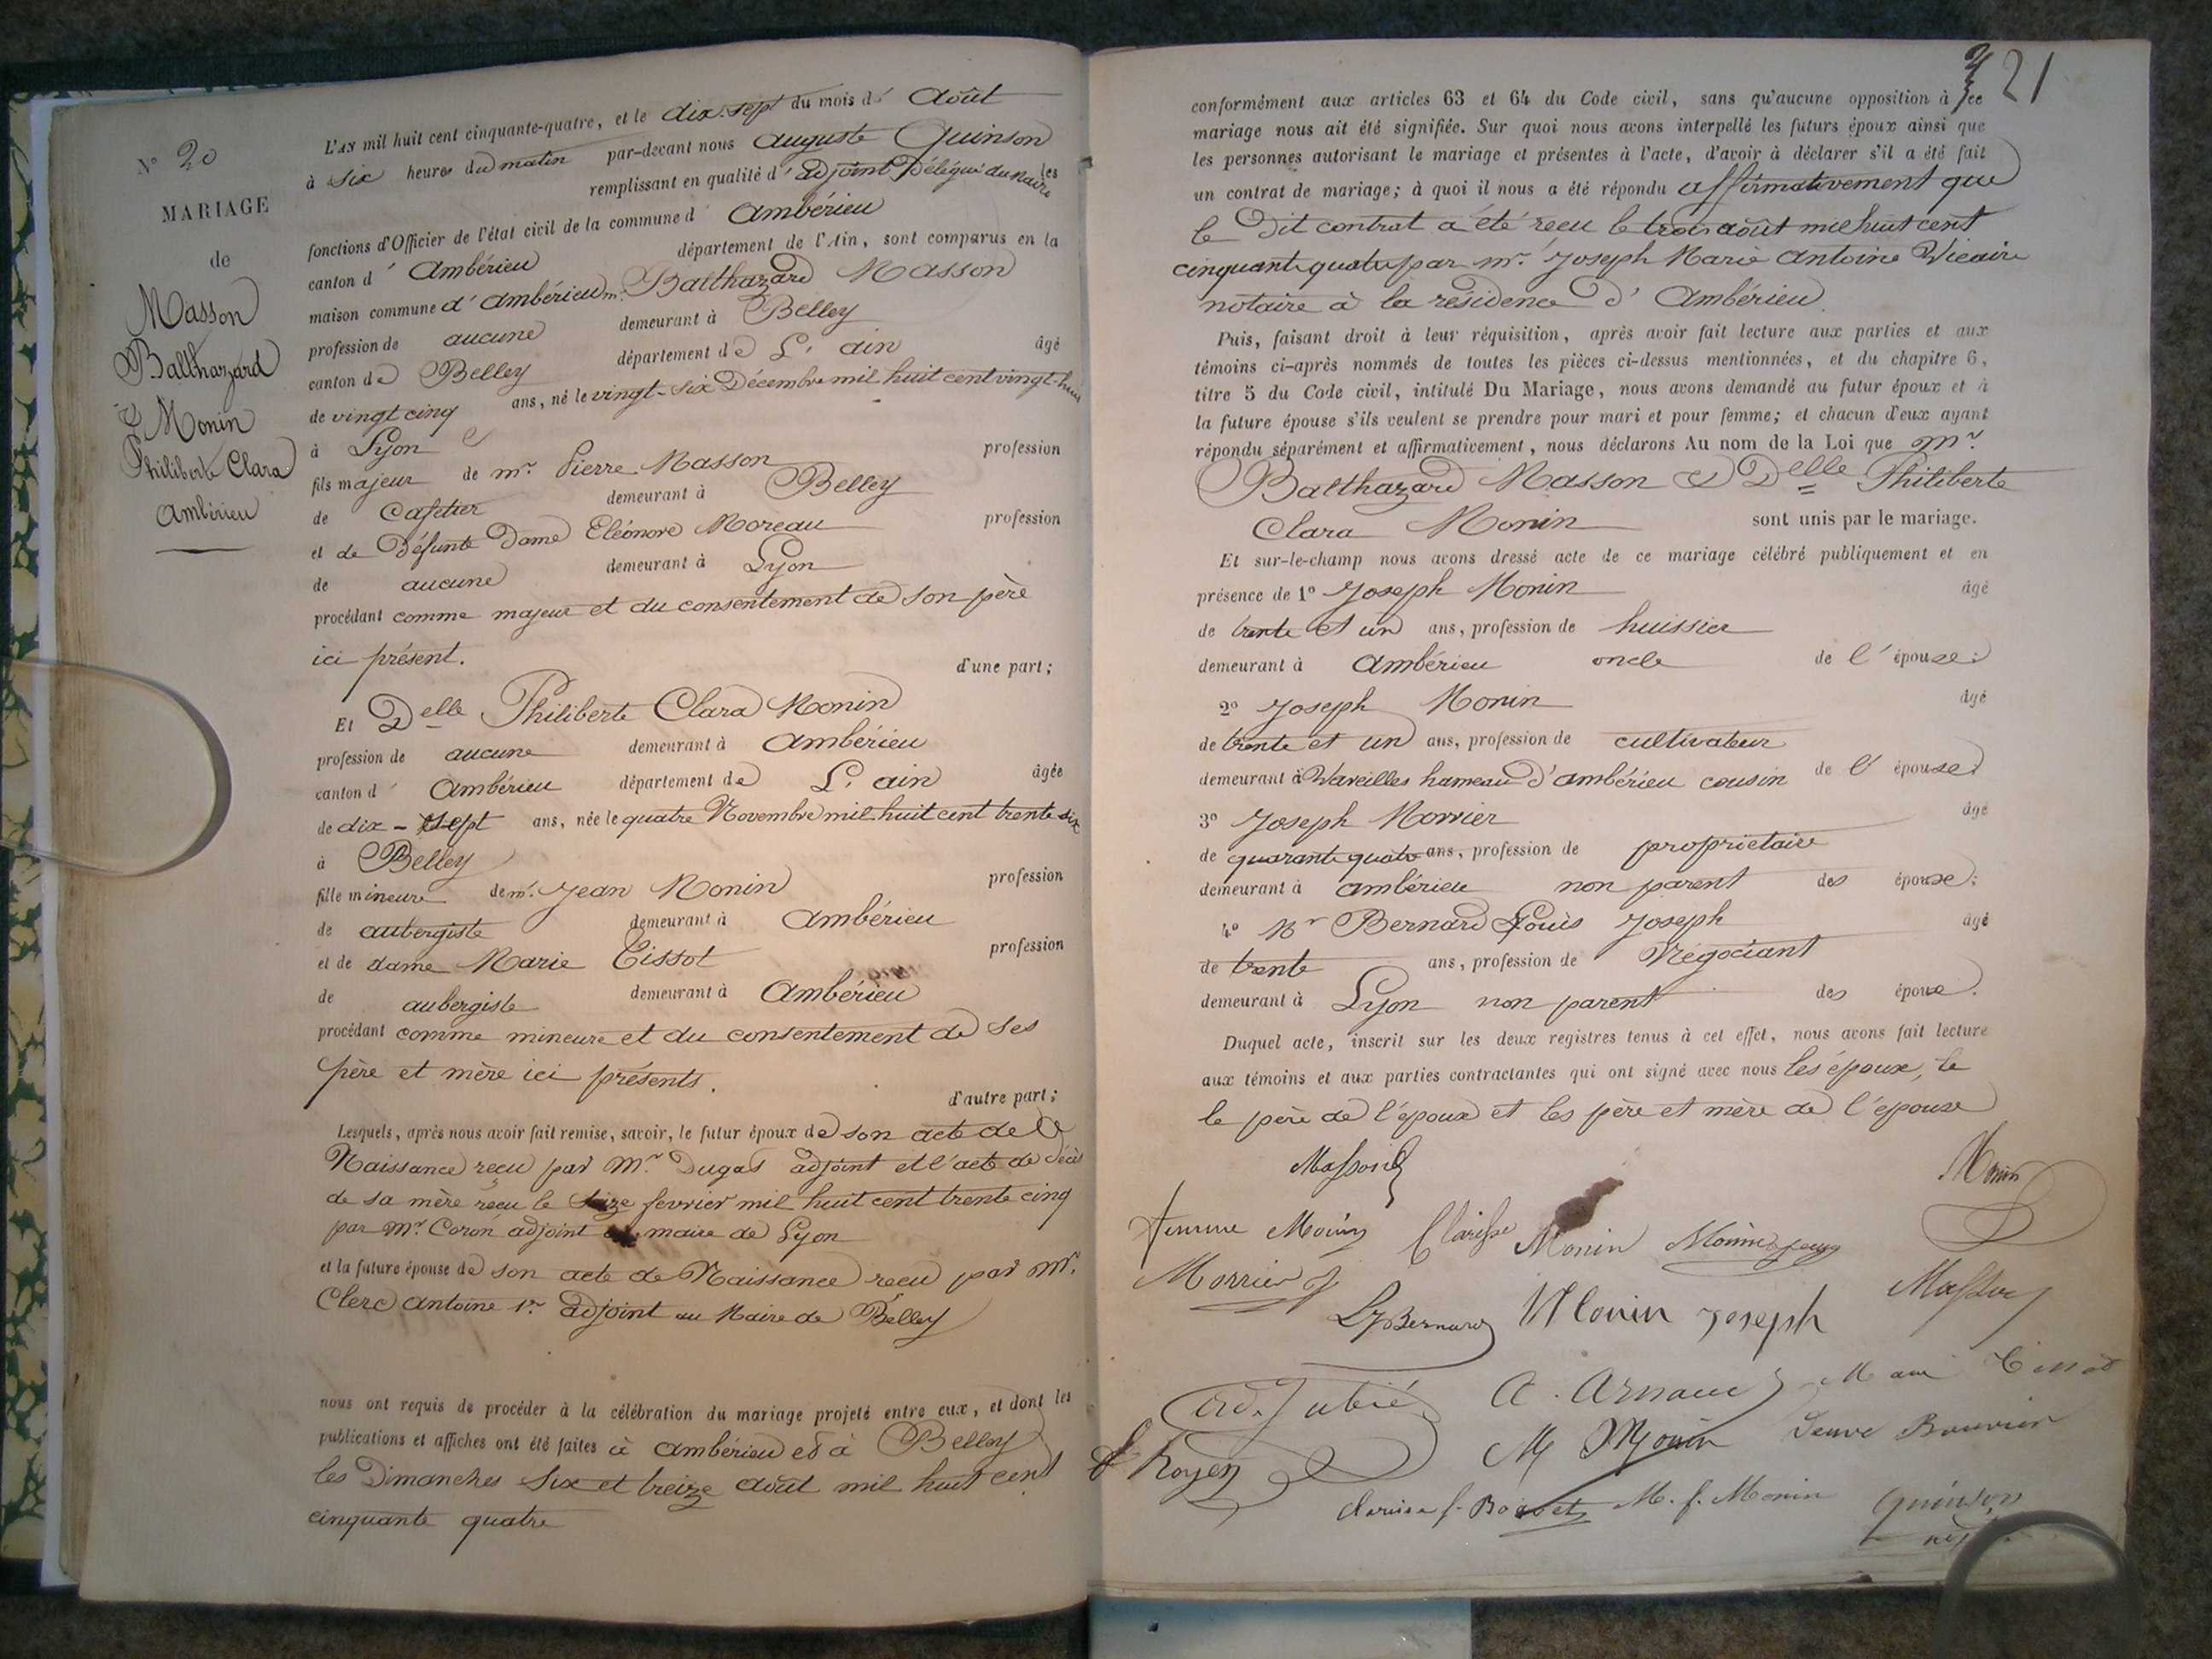 N° 20
MARIAGE
de
Masson
Balthazard
& Monin
Philiberte Clara
Ambérieu
L'AN mil huit cent cinquante-quatre, et le dix-sept du mois d'Août
à six heures du matin par-devant nous Auguste Quinson
remplissant en qualité d'adjoint Délégué du maire les
fonctions d'Officier de l'état civil de la commune d'Ambérieu
canton d'Ambérieu département de l'Ain, sont comparus en la
maison commune d'Ambérieu mr. Balthazard Masson
profession de aucune demeurant à Belley
canton de Belley département de L'ain âgé
de vingt cinq ans, né le vingt-six Décembre mil huit cent vingt-huit
à Lyon
fils majeur de mr. Pierre Masson profession
de Cafetier demeurant à Belley
et de Défunte Dame Eléonore Moreau profession
de aucune demeurant à Lyon
procédant comme majeur et du consentement de son père
ici présent.
d'une part;
Et Delle Philiberte Clara Monin
profession de aucune demeurant à Ambérieu
canton d'Ambérieu département de L'ain âgée
de dix-sept ans, née le quatre Novembre mil huit cent trente six
à Belley
fille mineure de mr. Jean Monin profession
de aubergiste demeurant à Ambérieu
et de dame Marie Tissot profession
de aubergiste demeurant à Ambérieu
procédant comme mineure et du consentement de ses
père et mère ici présents.
d'autre part;
Lesquels, après nous avoir fait remise, savoir, le futur époux de son acte de
Naissance reçu par Mr. Dugas adjoint et l'acte de décès
de sa mère reçu le seize fevrier mil huit cent trente cinq
par Mr. Coron adjoint maire de Lyon
et la future épouse de son acte de Naissance reçu par Mr.
Clerc Antoine 1er adjoint au Maire de Belley
nous ont requis de procéder à la célébration du mariage projeté entre eux, et dont les
publications et affiches ont été faites à Ambérieu et à Belley
les Dimanches Six et treize août mil huit cent
cinquante quatre
21
conformément aux articles 63 et 64 du Code civil, sans qu'aucune opposition à ce
mariage nous ait été signifiée. Sur quoi nous avons interpellé les futurs époux ainsi que
les personnes autorisant le mariage et présentes à l'acte, d'avoir à déclarer s'il a été fait
un contrat de mariage; à quoi il nous a été répondu affirmativement que
le Dit contrat a été reçu le trois août mil huit cent
cinquante quatre par mr. Joseph Marie Antoine Vicaire
notaire à la résidence d'Ambérieu.
Puis, faisant droit à leur réquisition, après avoir fait lecture aux parties et aux
témoins ci-après nommés de toutes les pièces ci-dessus mentionnées, et du chapitre 6,
titre 5 du Code civil, intitulé Du Mariage, nous avons demandé au futur époux et à
la future épouse s'ils veulent se prendre pour mari et pour femme; et chacun d'eux ayant
répondu séparément et affirmativement, nous déclarons Au nom de la Loi que mr.
Balthazard Masson & Delle Philiberte
Clara Monin sont unis par le mariage.
Et sur-le-champ nous avons dressé acte de ce mariage célébré publiquement et en
présence de 1° Joseph Monin âgé
de trente et un ans, profession de huissier
demeurant à Ambérieu oncle de l'épouse;
2° Joseph Monin âgé
de trente et un ans, profession de cultivateur
demeurant à Vareilles hameau d'ambérieu cousin de l'épouse
3° Joseph Morrier âgé
de quarante quatre ans, profession de propriétaire
demeurant à ambérieu non parent des époux;
4° Mr Bernard Louis Joseph âgé
de trente ans, profession de Négociant
demeurant à Lyon non parent des époux.
Duquel acte, inscrit sur les deux registres tenus à cet effet, nous avons fait lecture
aux témoins et aux parties contractantes qui ont signé avec nous les époux, le
le père de l'époux et les père et mère de l'épouse
Masson
Monin
femme Monin Clarisse Monin Monin
Morrier
LJ Bernard Monin Joseph Masson
A. Arnaud
M Monin veuve Bouvier
Royer
M. f. Monin Quinson